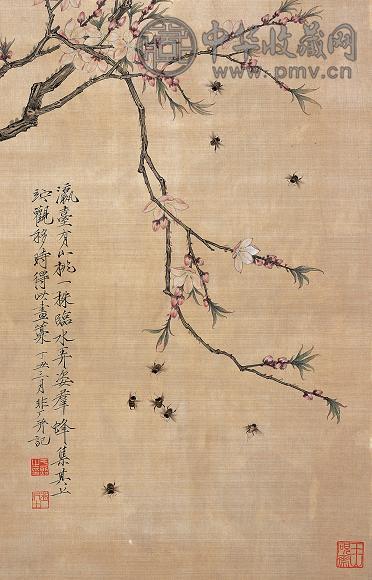 中华收藏网
www.pmv.cn
瀛臺有山桃一株臨水弄姿羣蜂集其上
竚觀移時得此畫藁丁丑三月非厂并記